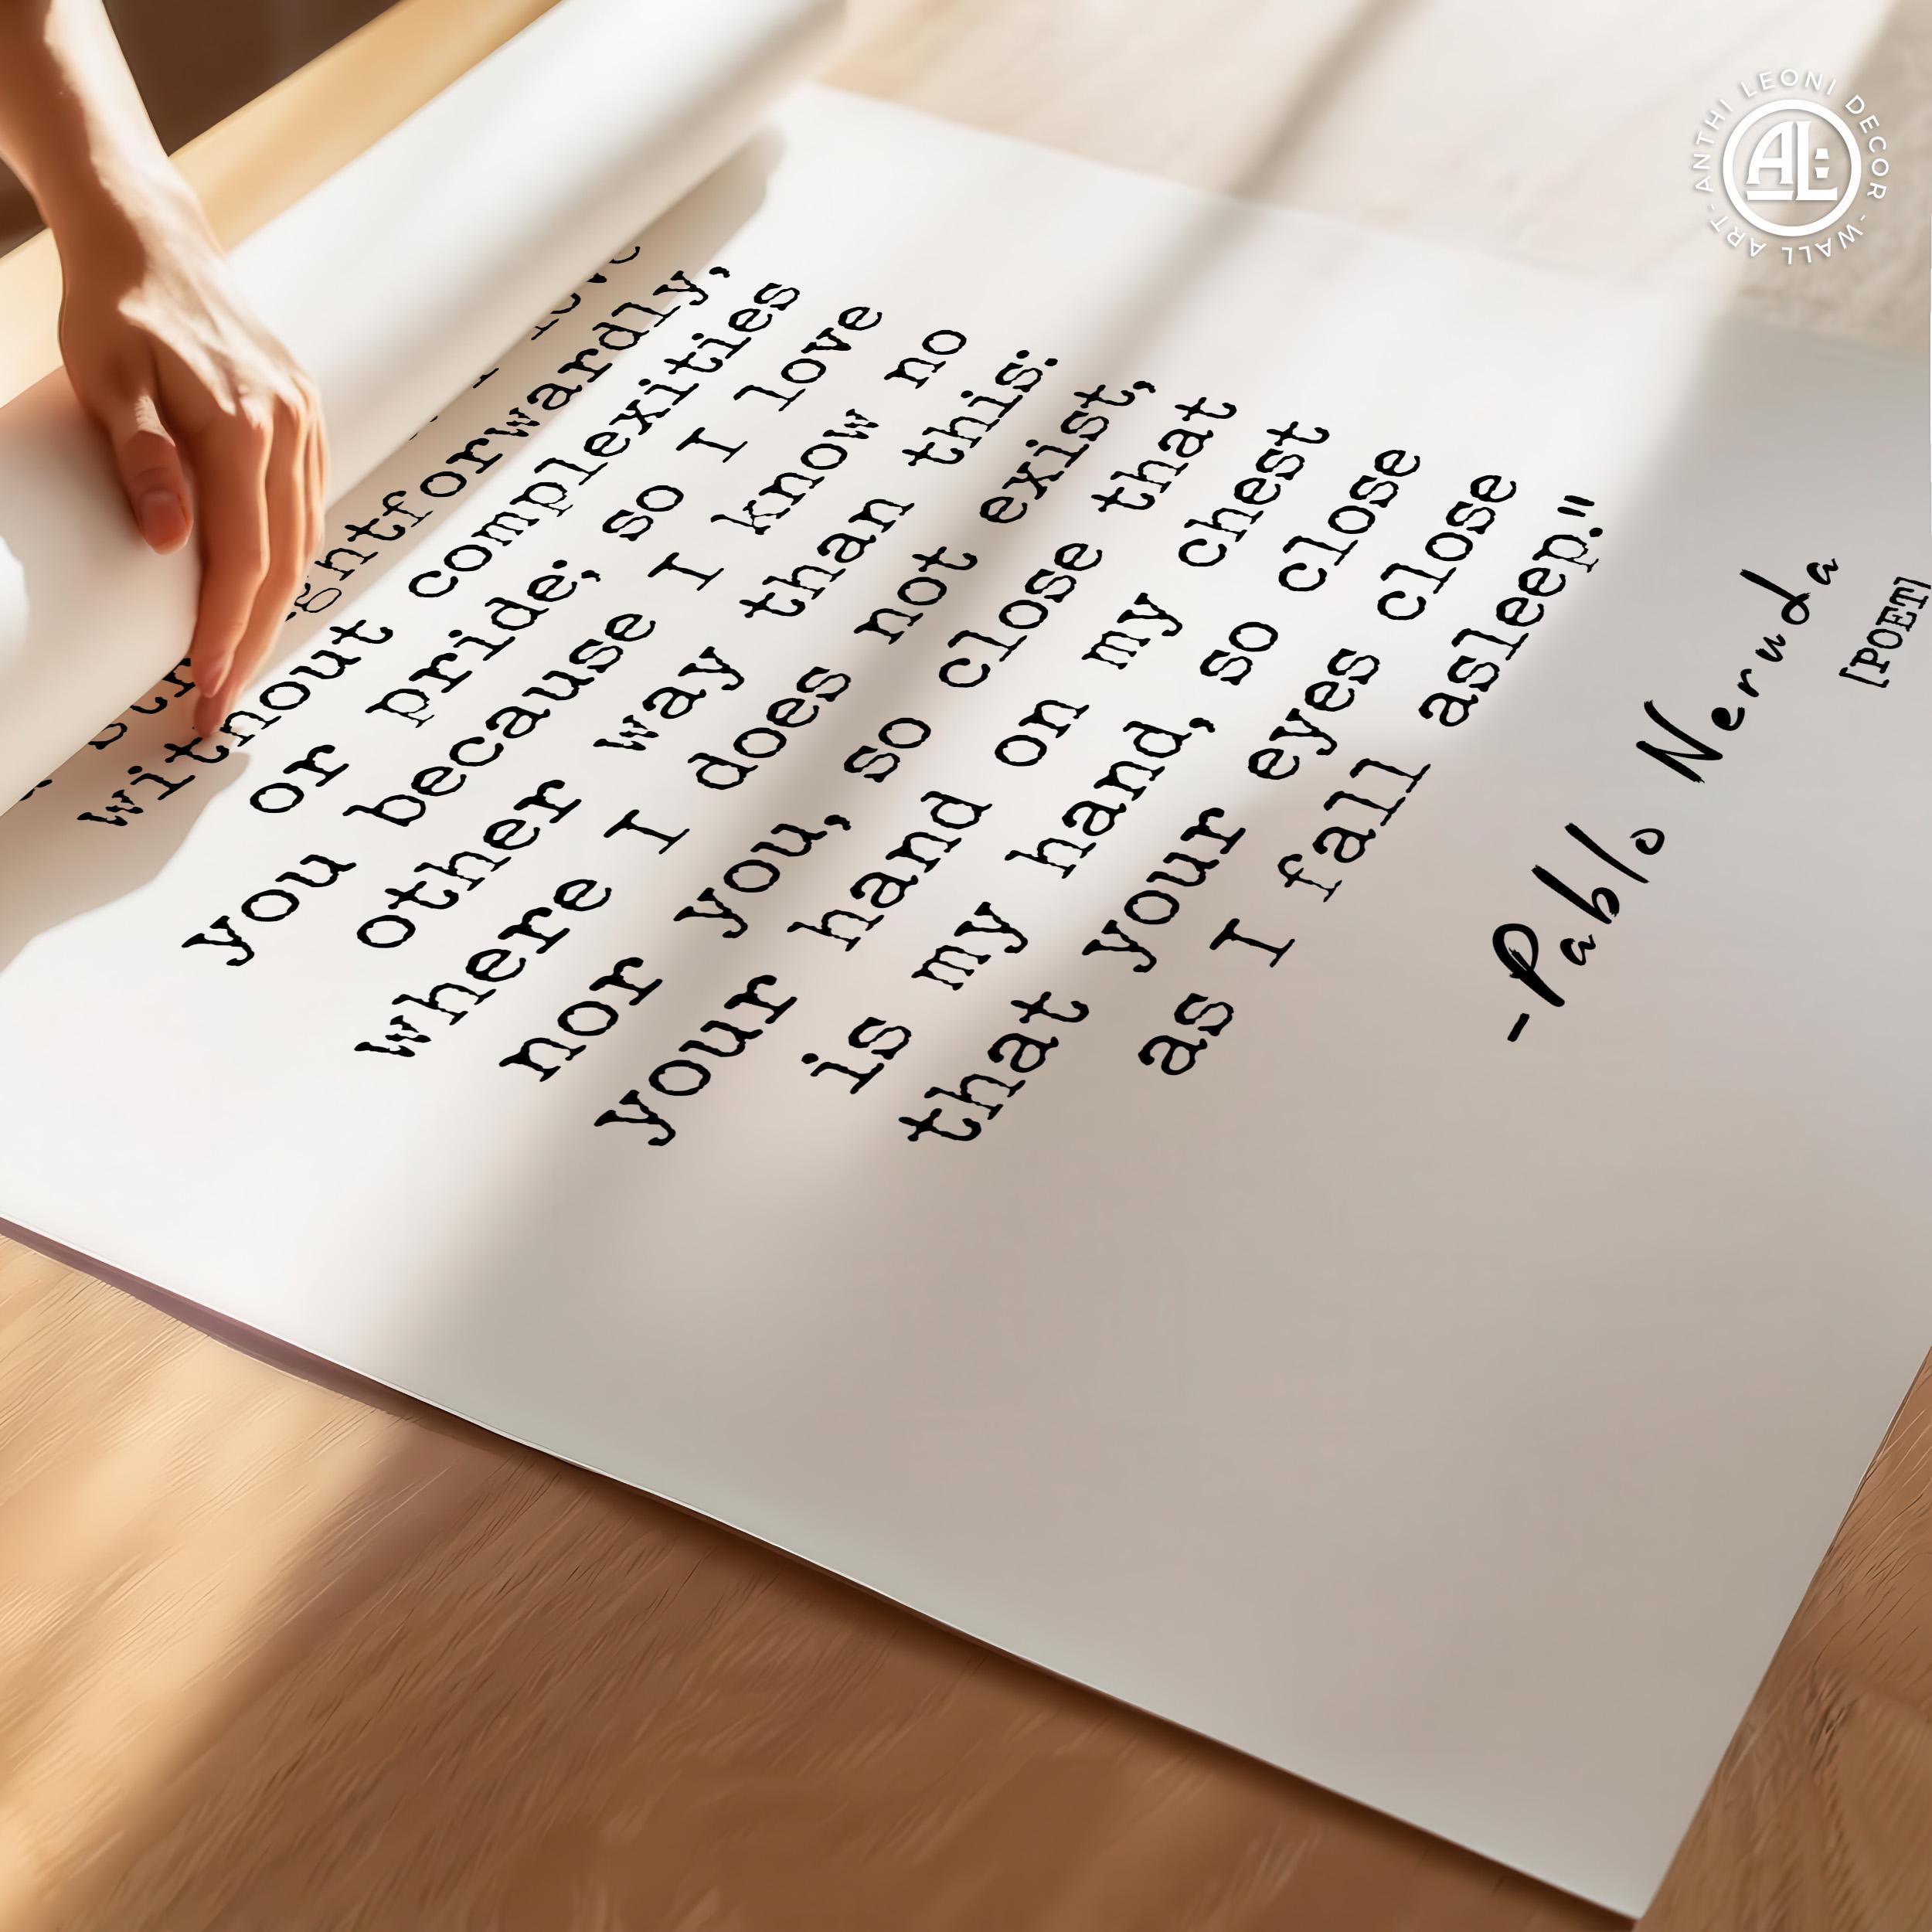 ghtforwardly,
without complexities
or pride; so I love
you because I know no
other way than this:
where I does not exist,
nor you, so close that
your hand on my chest
is my hand, so close
that your eyes close
as I fall asleep."
-Pablo Neruda
[POET]
ANTHI LEONI DECOR - WALL ART -
AL